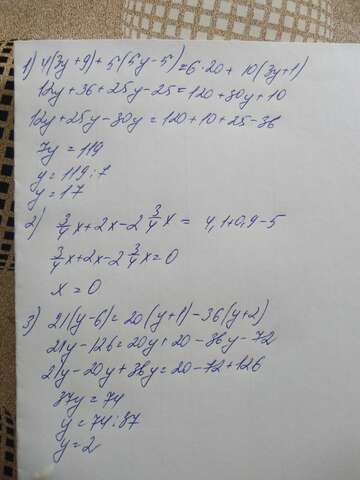 1) 4(3y+9)+5(5y-5)=6·20+10(3y+1)
12y+36+25y-25=120+30y+10
12y+25y-30y=120+10+25-36
7y=119
y=119:7
y=17
2) 3/4x+2x-2 3/4x= 4,1+0,9-5
3/4x+2x-2 3/4x=0
x=0
3) 21(y-6)=20(y+1)-36(y+2)
21y-126=20y+20-36y-72
21y-20y+36y=20-72+126
37y=74
y=74:37
y=2